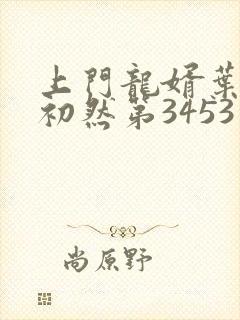 上門龍婿葉
初然第3453
尚原野